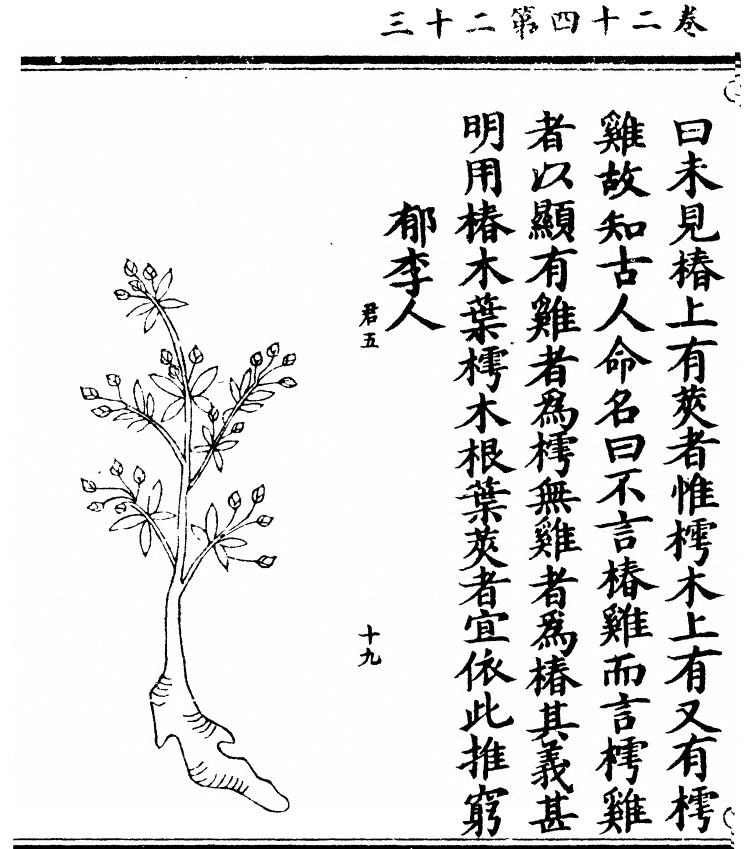 卷二十四第二十三
曰未見椿上有莢者惟樗木上有又有樗
雞故知古人命名曰不言椿雞而言樗雞
者以顯有雞者為樗無雞者為椿其義甚
明用椿木葉樗木根葉莢者宜依此推窮
郁李人
君五
十九